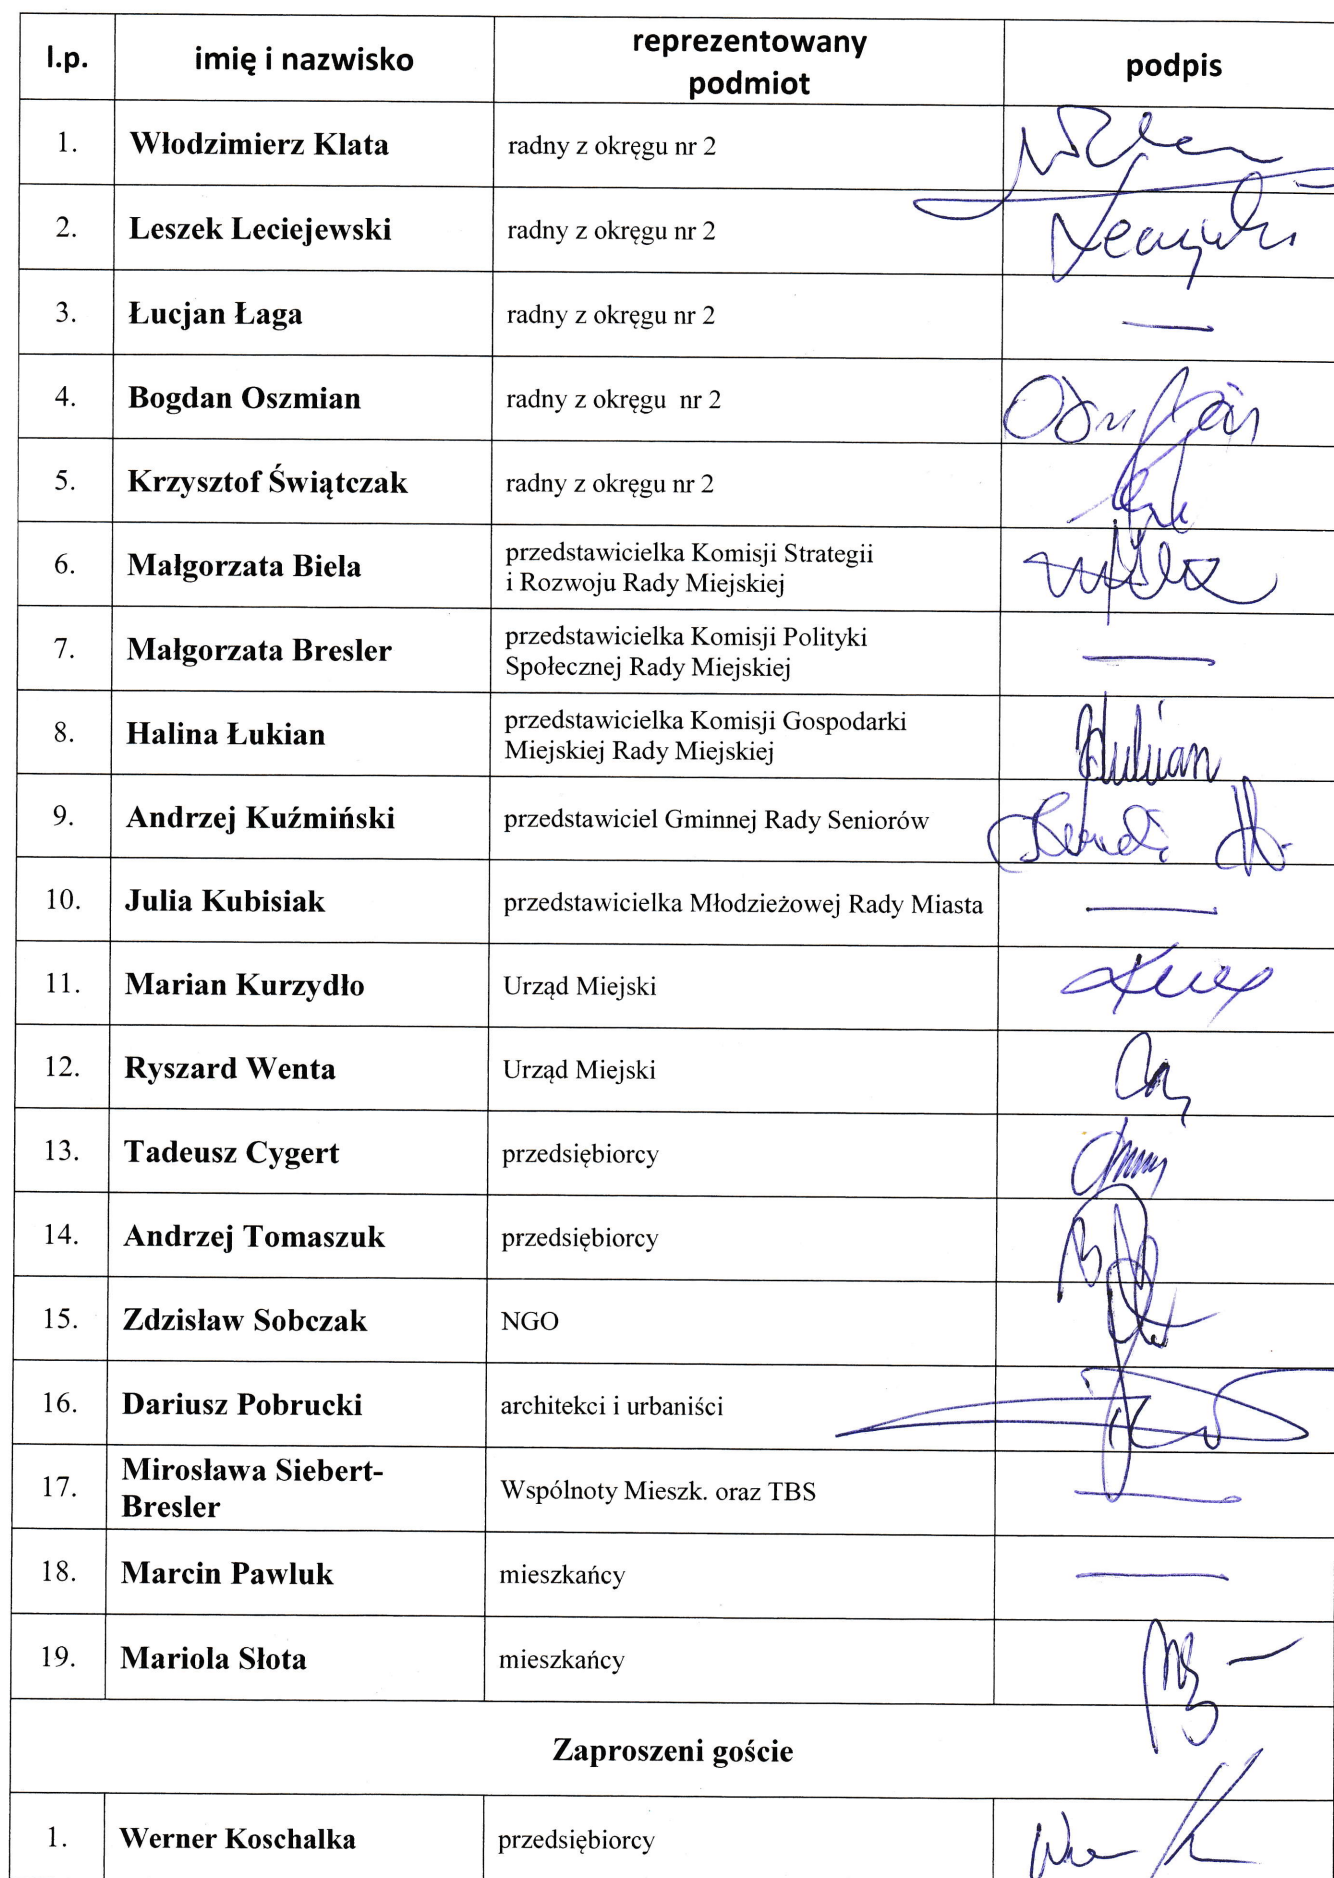 l.p. imię i nazwisko reprezentowany podmiot podpis
1. Włodzimierz Klata radny z okręgu nr 2
2. Leszek Leciejewski radny z okręgu nr 2
3. Łucjan Łaga radny z okręgu nr 2 —
4. Bogdan Oszmian radny z okręgu nr 2
5. Krzysztof Świątczak radny z okręgu nr 2
6. Małgorzata Biela przedstawicielka Komisji Strategii
i Rozwoju Rady Miejskiej
7. Małgorzata Bresler przedstawicielka Komisji Polityki
Społecznej Rady Miejskiej —
8. Halina Łukian przedstawicielka Komisji Gospodarki
Miejskiej Rady Miejskiej
9. Andrzej Kuźmiński przedstawiciel Gminnej Rady Seniorów
10. Julia Kubisiak przedstawicielka Młodzieżowej Rady Miasta —
11. Marian Kurzydło Urząd Miejski
12. Ryszard Wenta Urząd Miejski
13. Tadeusz Cygert przedsiębiorcy
14. Andrzej Tomaszuk przedsiębiorcy
15. Zdzisław Sobczak NGO
16. Dariusz Pobrucki architekci i urbaniści
17. Mirosława Siebert-
Bresler Wspólnoty Mieszk. oraz TBS —
18. Marcin Pawluk mieszkańcy —
19. Mariola Słota mieszkańcy
Zaproszeni goście
1. Werner Koschalka przedsiębiorcy